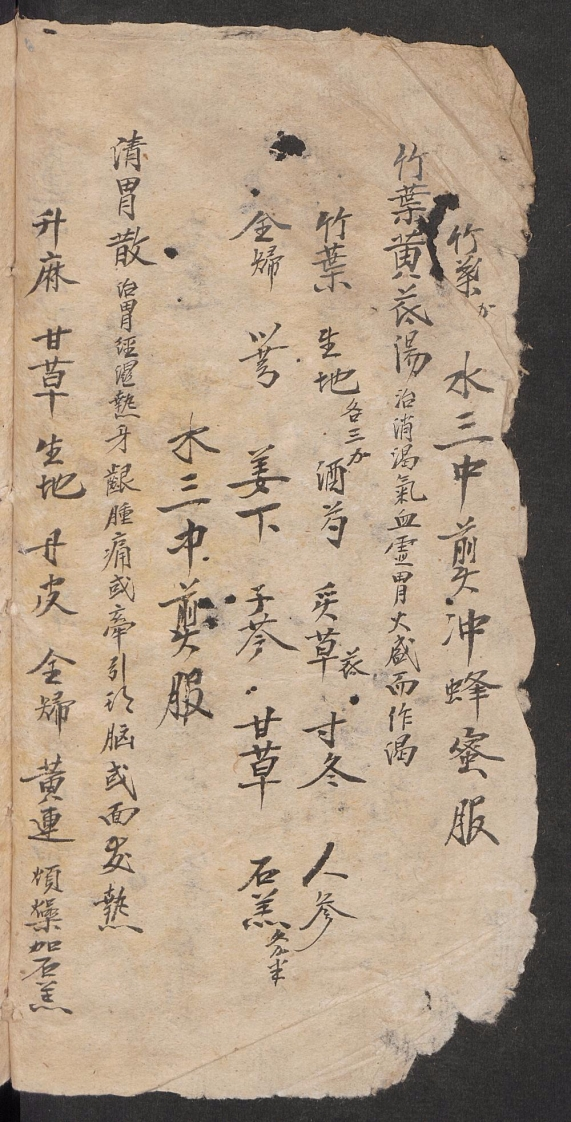 竹葉 水三中煎冲蜂蜜服
竹葉黃芪湯治消渴氣血虛胃火盛而作渴
竹葉 生地各三 酒芍 炙草 芪 寸冬 人參
全歸 芎 姜下 子芩 甘草 石羔 半
水三中煎服
清胃散治胃經湿熱牙齦腫痛或牽引 脑或面发熱
升麻 甘草 生地 丹皮 全歸 黃連 煩燥加石羔